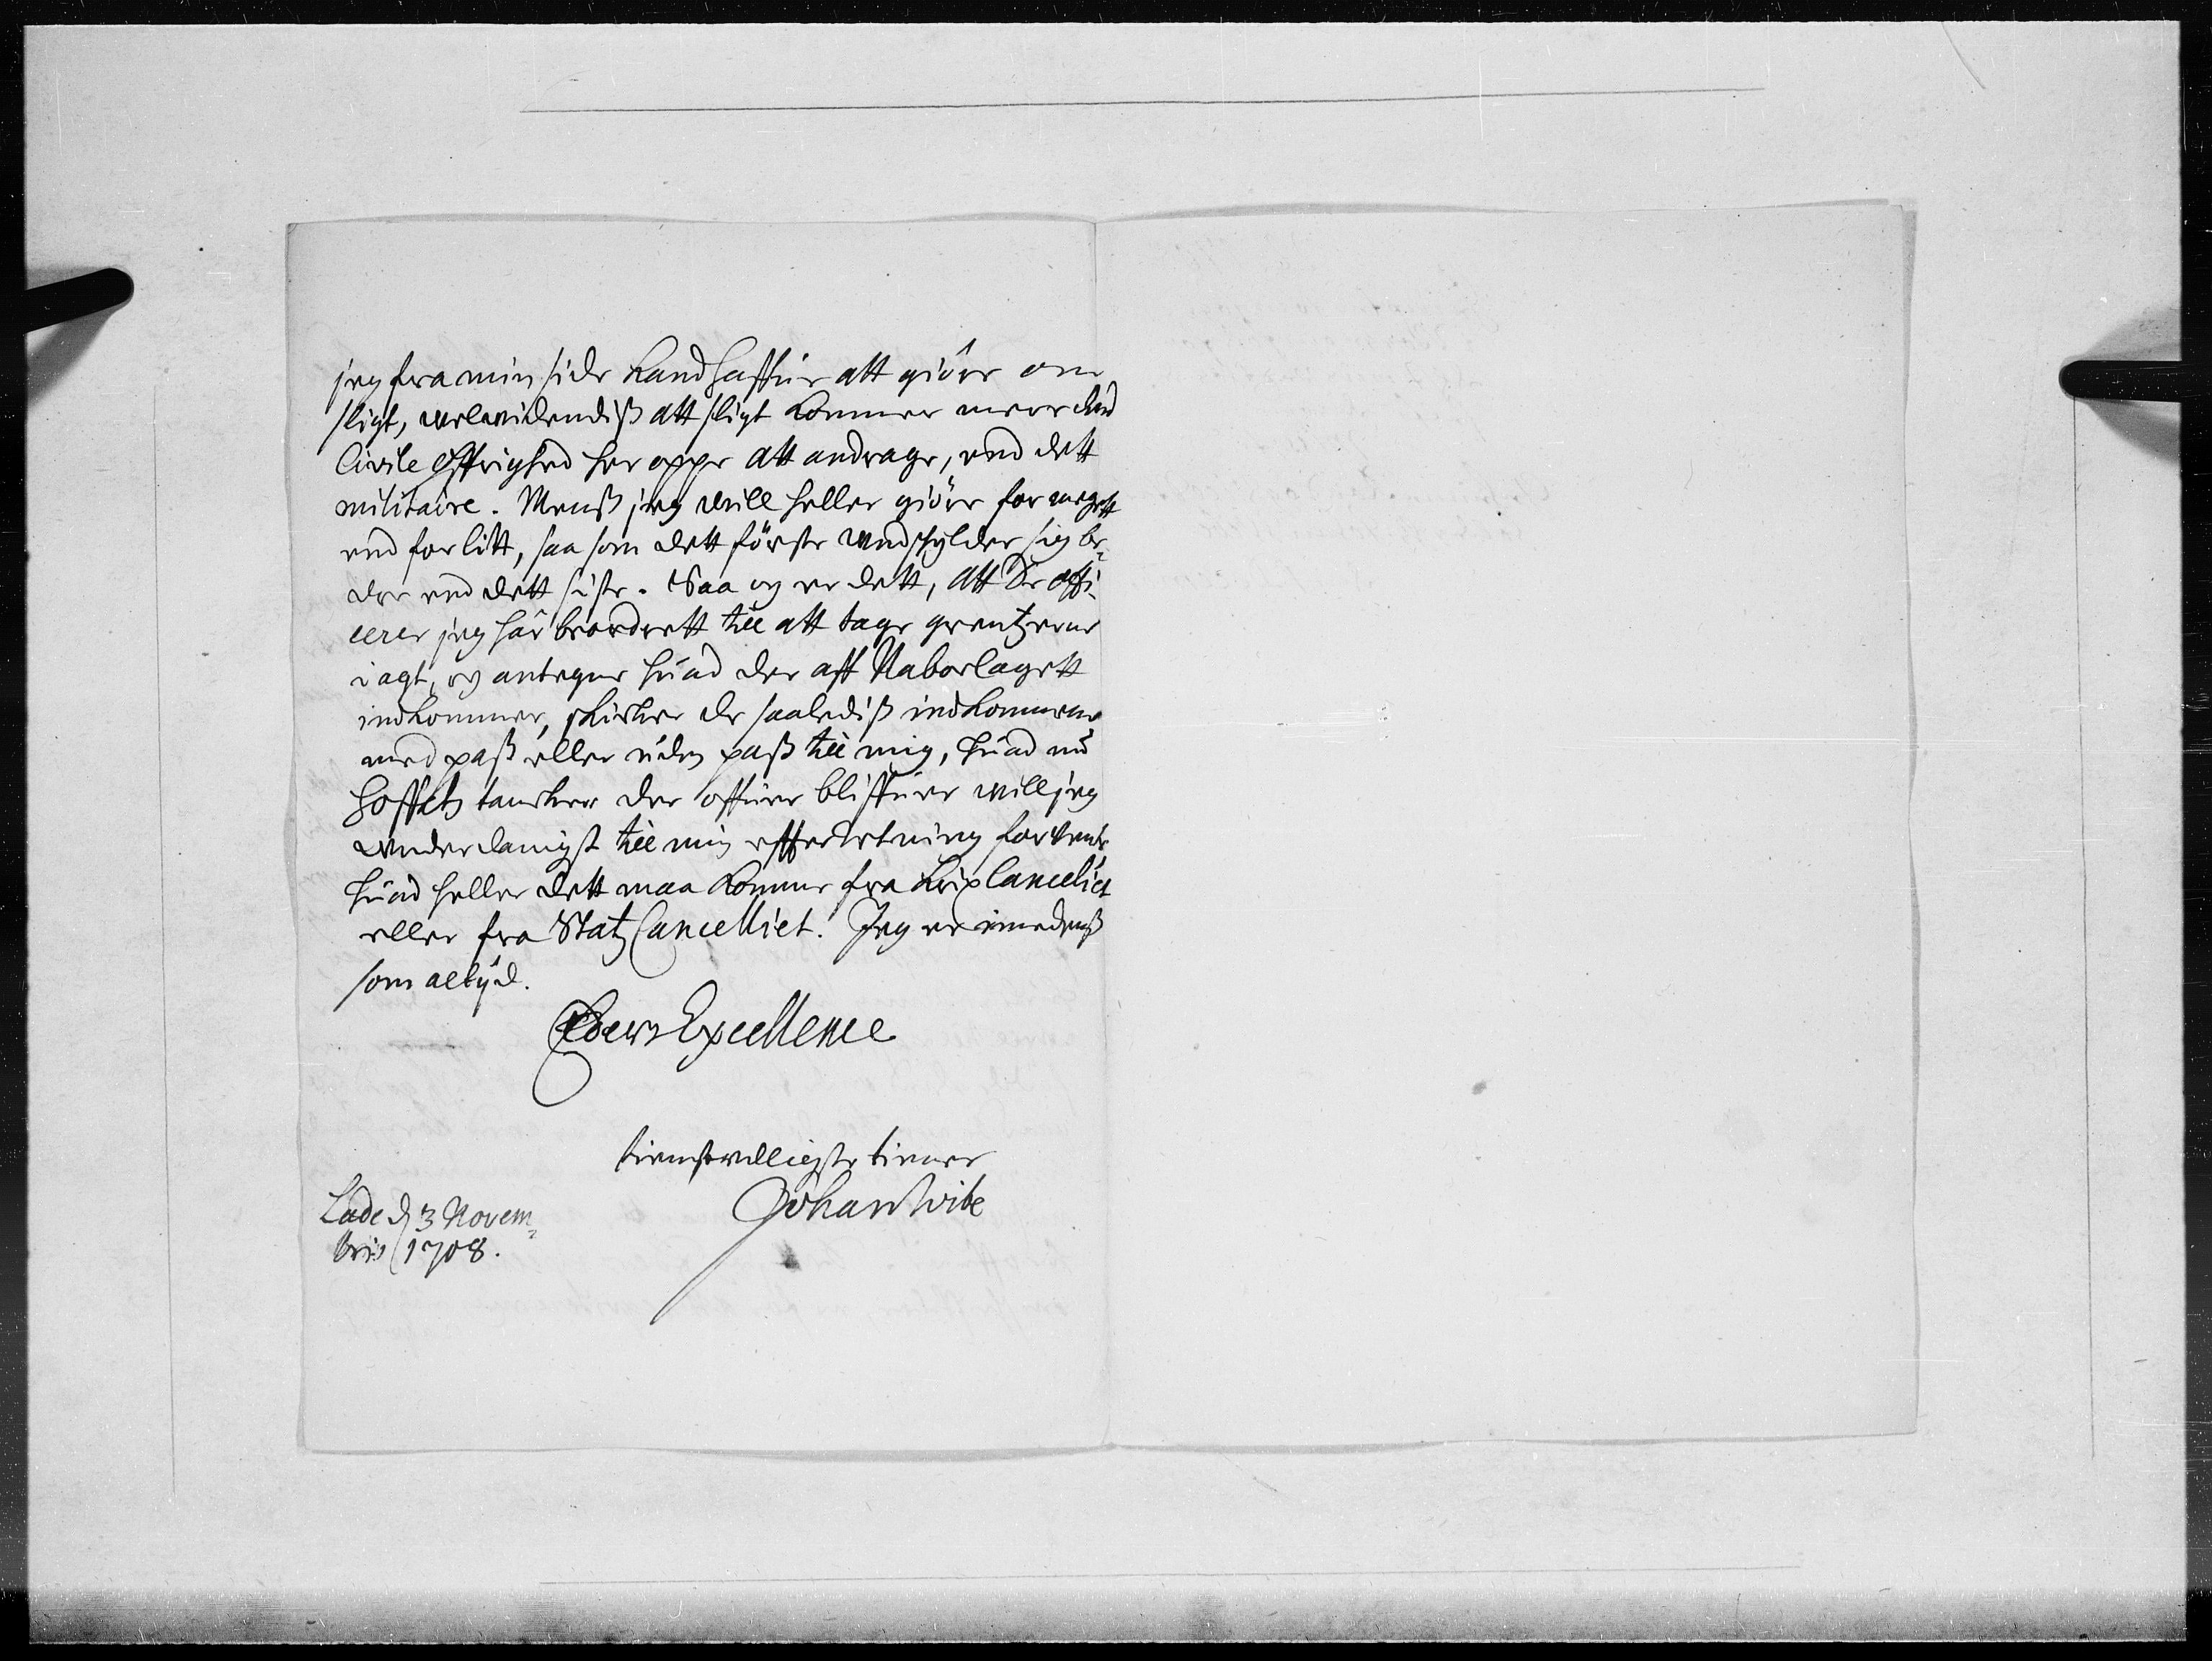 jeg fra min side kand haffue att giöre om
sligt, velvidendiß att sligt kommer meere dend
Civile öffrighed her oppe att andrage, end dett
militaire. Menß jeg vill heller giöre for megett
end for litt, saa som dett förste undskylder sig be¬
dre end dett siste. Saa og er dett, att De offi¬
cerer jeg har beordrett till att tage grentzerne
i agt, og antegne huad der aff Naborlagett
indkommer, skicker de saalediß indkommene
med paß eller uden paß till mig, huad nu
hoffetz tancker der offuer bliffuer will jeg
underdanigst till min effterretning forvente
huad heller dett maa komme fra KrigsCancelliet
eller fra StatzCancelliet. Jeg er imedenß
som altijd.
Eders Excellence
tienstvilligste tiener
Johan Wibe
Lade d 3 Novem¬
bris 1708.